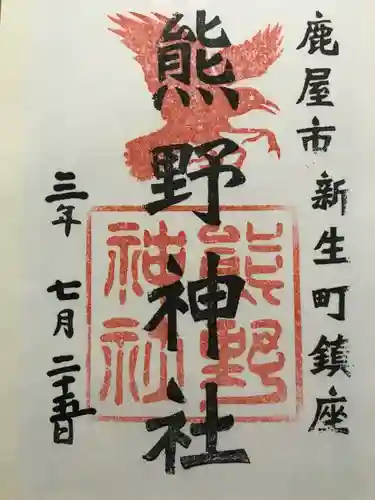 鹿屋市新生町鎮座
熊野神社
熊野
神社
三年七月二十五日